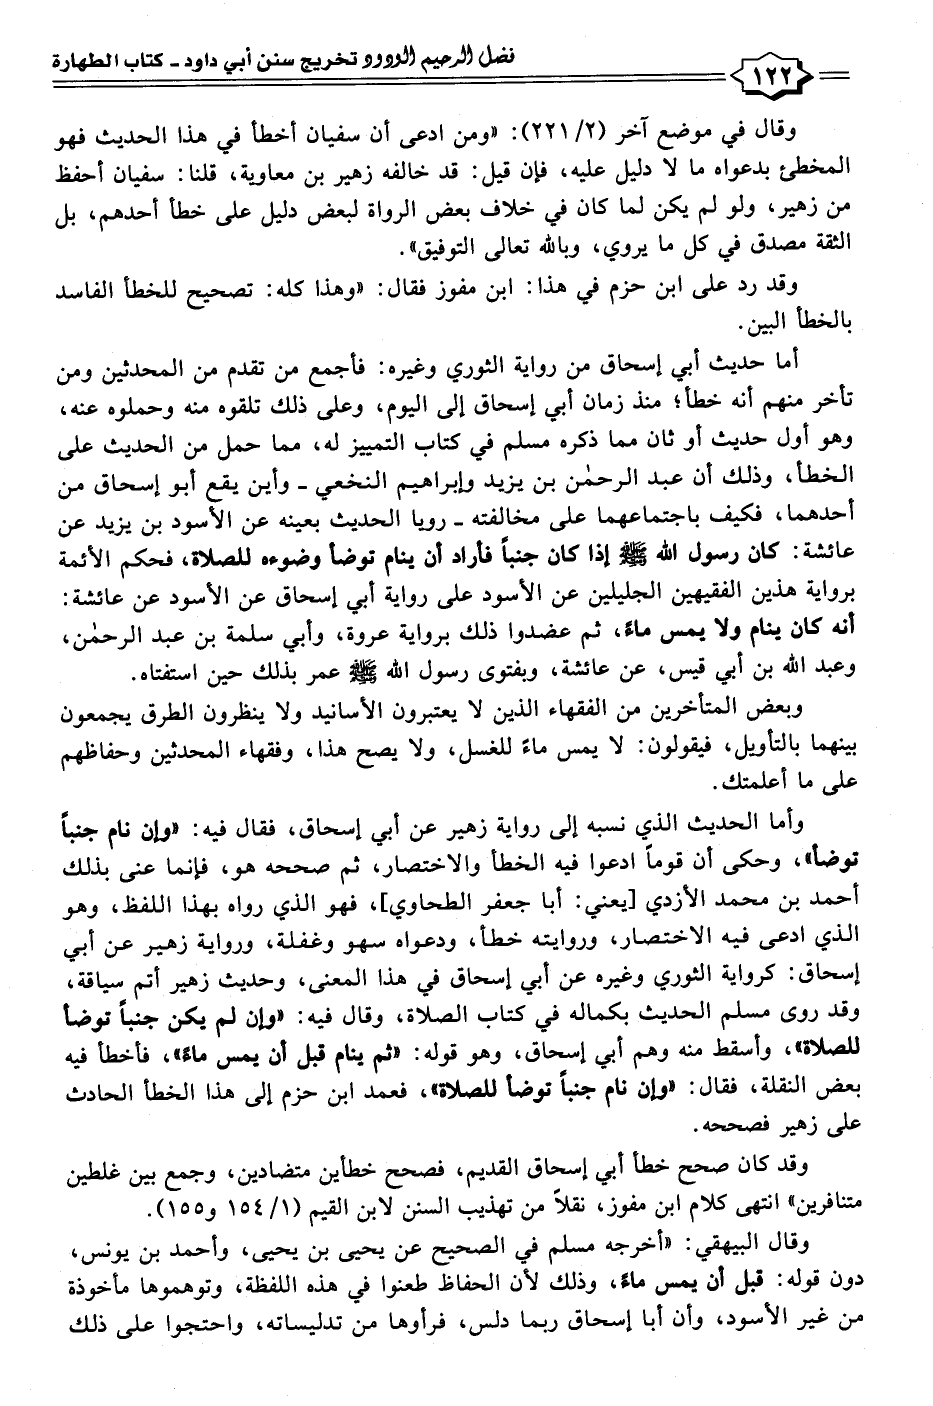 فضل الرحيم الودود تخريج سنن أبي داود - كتاب الطهارة
١٢٢
وقال في موضع آخر (٢/ ٢٢١): «ومن ادعى أن سفيان أخطأ في هذا الحديث فهو
المخطئ بدعواه ما لا دليل عليه، فإن قيل: قد خالفه زهير بن معاوية، قلنا: سفيان أحفظ
من زهير، ولو لم يكن لما كان في خلاف بعض الرواة لبعض دليل على خطأ أحدهم، بل
الثقة مصدق في كل ما يروي، وبالله تعالى التوفيق».
وقد رد على ابن حزم في هذا: ابن مفوز فقال: «وهذا كله: تصحيح للخطأ الفاسد
بالخطأ البين.
أما حديث أبي إسحاق من رواية الثوري وغيره: فأجمع من تقدم من المحدثين ومن
تأخر منهم أنه خطأ؛ منذ زمان أبي إسحاق إلى اليوم، وعلى ذلك تلقوه منه وحملوه عنه،
وهو أول حديث أو ثان مما ذكره مسلم في كتاب التمييز له، مما حمل من الحديث على
الخطأ، وذلك أن عبد الرحمٰن بن يزيد وإبراهيم النخعي - وأين يقع أبو إسحاق من
أحدهما، فكيف باجتماعهما على مخالفته - رويا الحديث بعينه عن الأسود بن يزيد عن
عائشة: كان رسول الله ﷺ إذا كان جنباً فأراد أن ينام توضأ وضوءه للصلاة، فحكم الأئمة
برواية هذين الفقيهين الجليلين عن الأسود على رواية أبي إسحاق عن الأسود عن عائشة:
أنه كان ينام ولا يمس ماءً، ثم عضدوا ذلك برواية عروة، وأبي سلمة بن عبد الرحمٰن،
وعبد الله بن أبي قيس، عن عائشة، وبفتوى رسول الله ﷺ عمر بذلك حين استفتاه.
وبعض المتأخرين من الفقهاء الذين لا يعتبرون الأسانيد ولا ينظرون الطرق يجمعون
بينهما بالتأويل، فيقولون: لا يمس ماءً للغسل، ولا يصح هذا، وفقهاء المحدثين وحفاظهم
على ما أعلمتك.
وأما الحديث الذي نسبه إلى رواية زهير عن أبي إسحاق، فقال فيه: «وإن نام جنباً
توضأ»، وحكى أن قوماً ادعوا فيه الخطأ والاختصار، ثم صححه هو، فإنما عنى بذلك
أحمد بن محمد الأزدي [يعني: أبا جعفر الطحاوي]، فهو الذي رواه بهذا اللفظ، وهو
الذي ادعى فيه الاختصار، وروايته خطأ، ودعواه سهو وغفلة، ورواية زهير عن أبي
إسحاق: كرواية الثوري وغيره عن أبي إسحاق في هذا المعنى، وحديث زهير أتم سياقة،
وقد روى مسلم الحديث بكماله في كتاب الصلاة، وقال فيه: «وإن لم يكن جنباً توضأ
للصلاة»، وأسقط منه وهم أبي إسحاق، وهو قوله: «ثم ينام قبل أن يمس ماءً»، فأخطأ فيه
بعض النقلة، فقال: «وإن نام جنباً توضأ للصلاة»، فعمد ابن حزم إلى هذا الخطأ الحادث
على زهير فصححه.
وقد كان صحح خطأ أبي إسحاق القديم، فصحح خطأين متضادين، وجمع بين غلطين
متنافرين» انتهى كلام ابن مفوز، نقلاً من تهذيب السنن لابن القيم (١/ ١٥٤ و١٥٥).
وقال البيهقي: «أخرجه مسلم في الصحيح عن يحيى بن يحيى، وأحمد بن يونس،
دون قوله: قبل أن يمس ماءً، وذلك لأن الحفاظ طعنوا في هذه اللفظة، وتوهموها مأخوذة
من غير الأسود، وأن أبا إسحاق ربما دلس، فرأوها من تدليساته، واحتجوا على ذلك